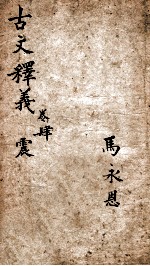 古文釋義 卷肆 震
馬永恩